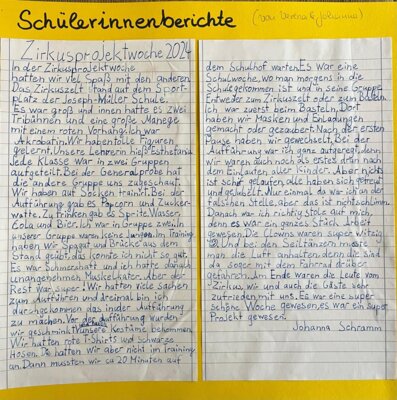 Schülerinnenberichte
(von Verena & Johanna)
Zirkusprojektwoche 2024
In der Zirkusprojektwoche
hatten wir viel Spaß mit den anderen.
Das Zirkuszelt stand auf dem Sport-
platz der Joseph-Müller Schule.
Es war groß und innen hatte es zwei
Tribünen und eine große Manege
mit einem roten Vorhang. Ich war
Akrobatin. Wir haben tolle Figuren
gelernt. Unsere Lehrerin hieß
Jede Klasse war in zwei Gruppen
aufgeteilt. Bei der Generalprobe hat
die andere Gruppe uns zugeschaut.
Wir haben auf Socken trainirt. Bei der
Aufführung gab es Popcorn und Zucker-
watte. Zu trinken gab es Sprite, Wasser,
Cola und Bier. Ich war in Gruppe zwei. In
unserer Gruppe waren keine Jungen. Im Training
haben wir Spagat und Brücke aus dem
Stand geübt, das konnte ich nicht so gut.
Es war Schmerzhaft und ich hatte danach
unangenehmen Muskelkater. Aber der
Rest war super! Wir hatten viele Sachen
zum Aufführen und dreimal bin ich
durchgekommen das in der Aufführung
zu machen. Vor der Aufführung wurden
wir geschminkt und haben unsere Kostüme bekommen.
Wir hatten rote T-Shirts und Schwarze
Hosen. Die hatten wir aber nicht im Training
an. Dann mussten wir ca 20 Minuten auf
dem Schulhof warten. Es war eine
Schulwoche, wo man morgens in die
Schule gekommen ist und in seine Gruppe
Entweder zum Zirkuszelt oder zum Basteln.
Ich war zuerst beim Basteln. Dort
haben wir Masken und Einladungen
gemacht oder gezaubert. Nach der ersten
Pause haben wir gewechselt. Bei der
Aufführung war ich ganz aufgeregt, denn
wir waren auch noch als erstes dran nach
dem Einlaufen aller Kinder. Aber nichts
ist schief gelaufen, alle haben sich gefreut
und gejubelt. Nur einmal da war ich an der
falschen Stelle, aber das ist nicht schlimm.
Danach war ich richtig stolz auf mich,
denn es war ein ganzes Stück Arbeit
gewesen. Die Clowns waren super witzig
Und bei den Seiltänzern musste
man die Luft anhalten, denn die sind
da sogar mit dem Fahrrad drüber
gefahren. Am Ende waren die Leute vom
Zirkus, wir und auch die Gäste sehr
zufrieden mit uns. Es war eine super
schöne Woche gewesen, es war ein super
Projekt gewesen.
Johanna Schramm